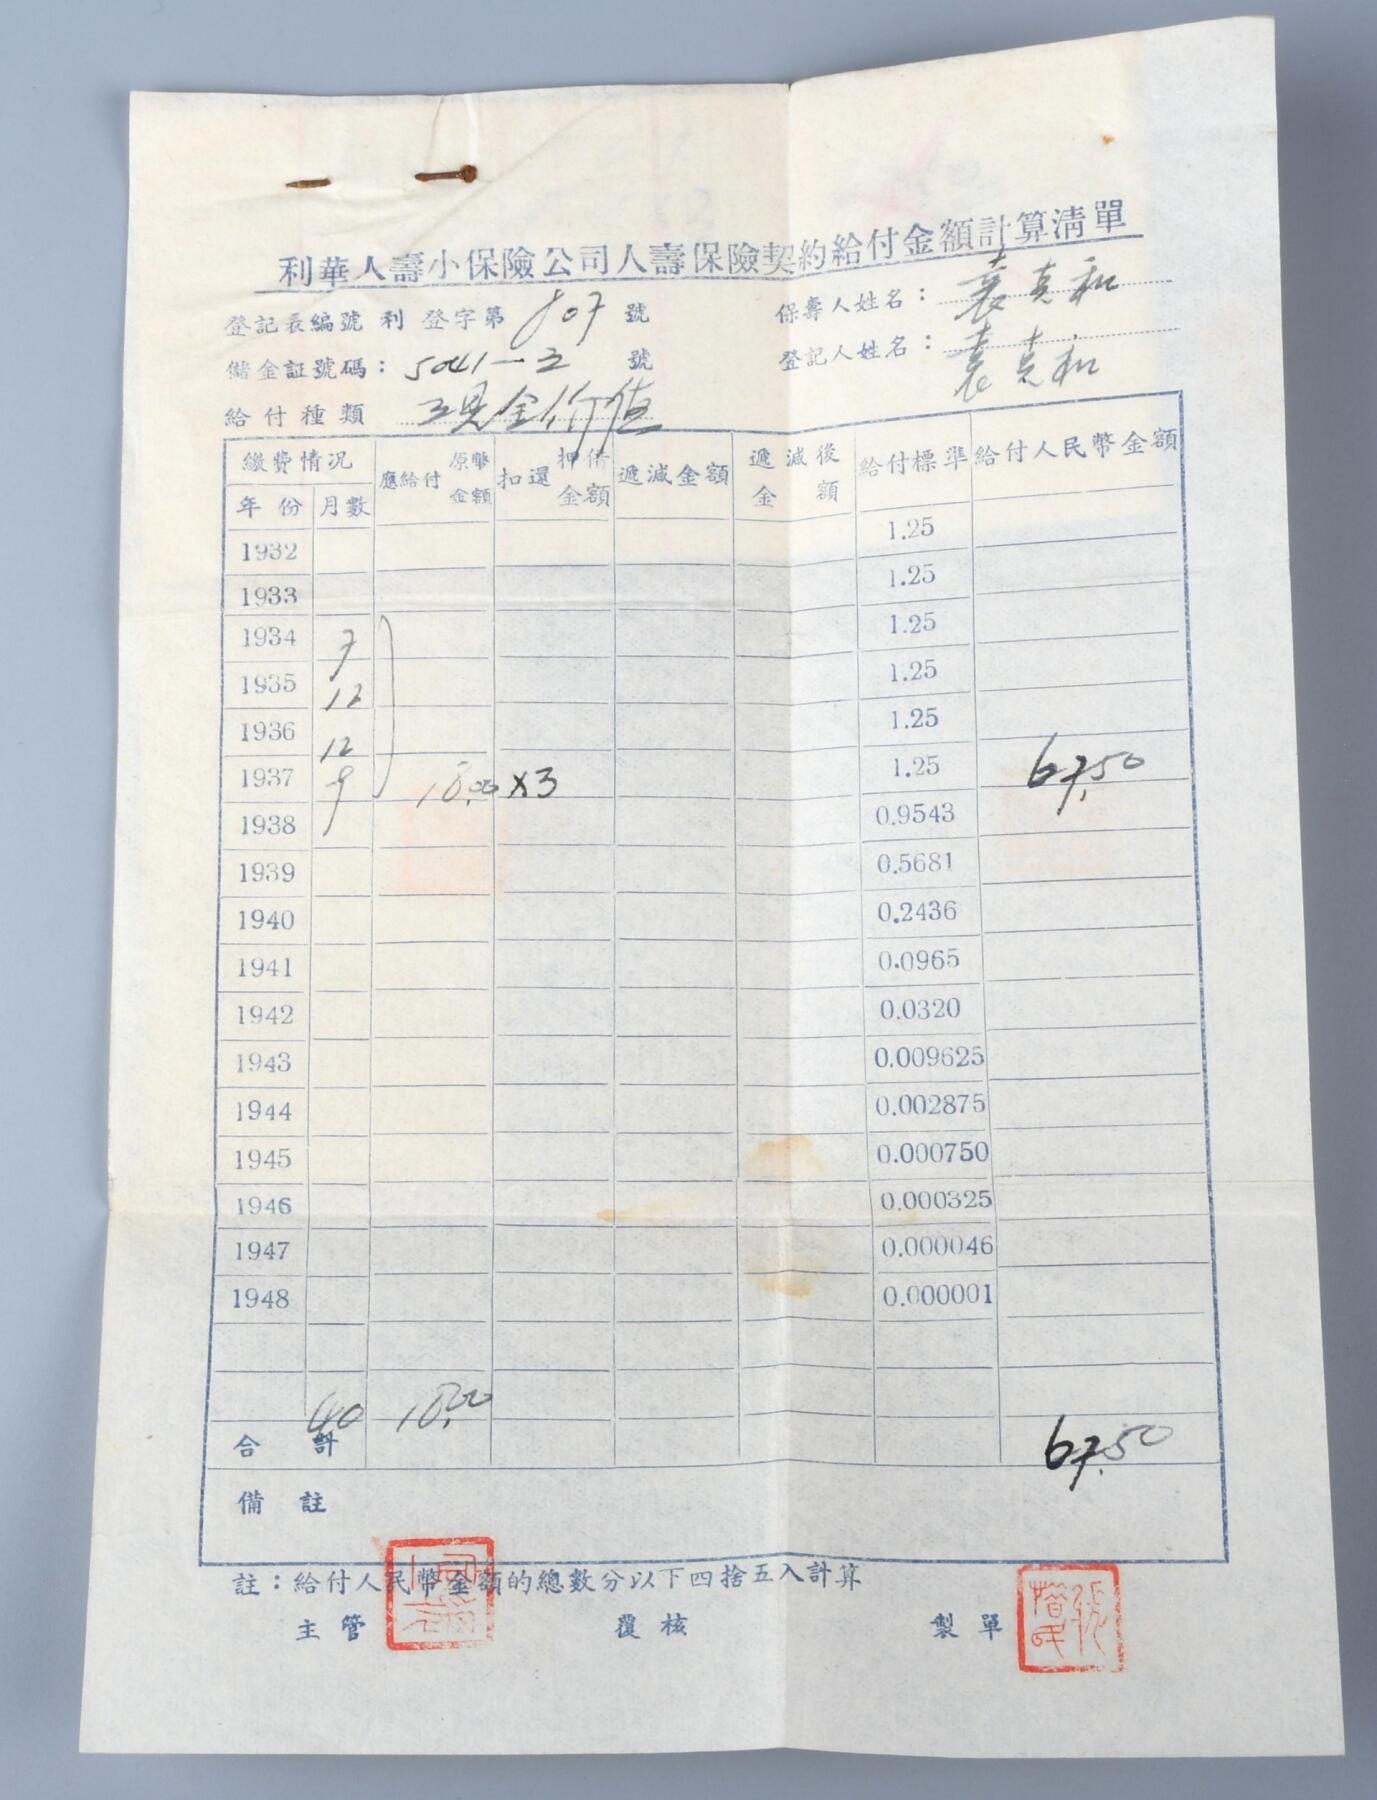 利華人壽小保險公司人壽保險契約給付金額計算清單
登記表編號 利 登字第 807 號
保壽人姓名： 袁克和
儲金証號碼： 5041-2 號
登記人姓名： 袁克和
給付種類 現金价值
繳費情況 應給付原幣金額 扣還押借金額 遞減金額 遞減後金額 給付標準 給付人民幣金額
年份 月數
1932 1.25
1933 1.25
1934 7 1.25
1935 12 1.25
1936 12 1.25
1937 9 18.00 ×3 1.25 67.50
1938 0.9543
1939 0.5681
1940 0.2436
1941 0.0965
1942 0.0320
1943 0.009625
1944 0.002875
1945 0.000750
1946 0.000325
1947 0.000046
1948 0.000001
合計 40 18.00 67.50
備註
註：給付人民幣金額的總數分以下四捨五入計算
主管 覆核 製單